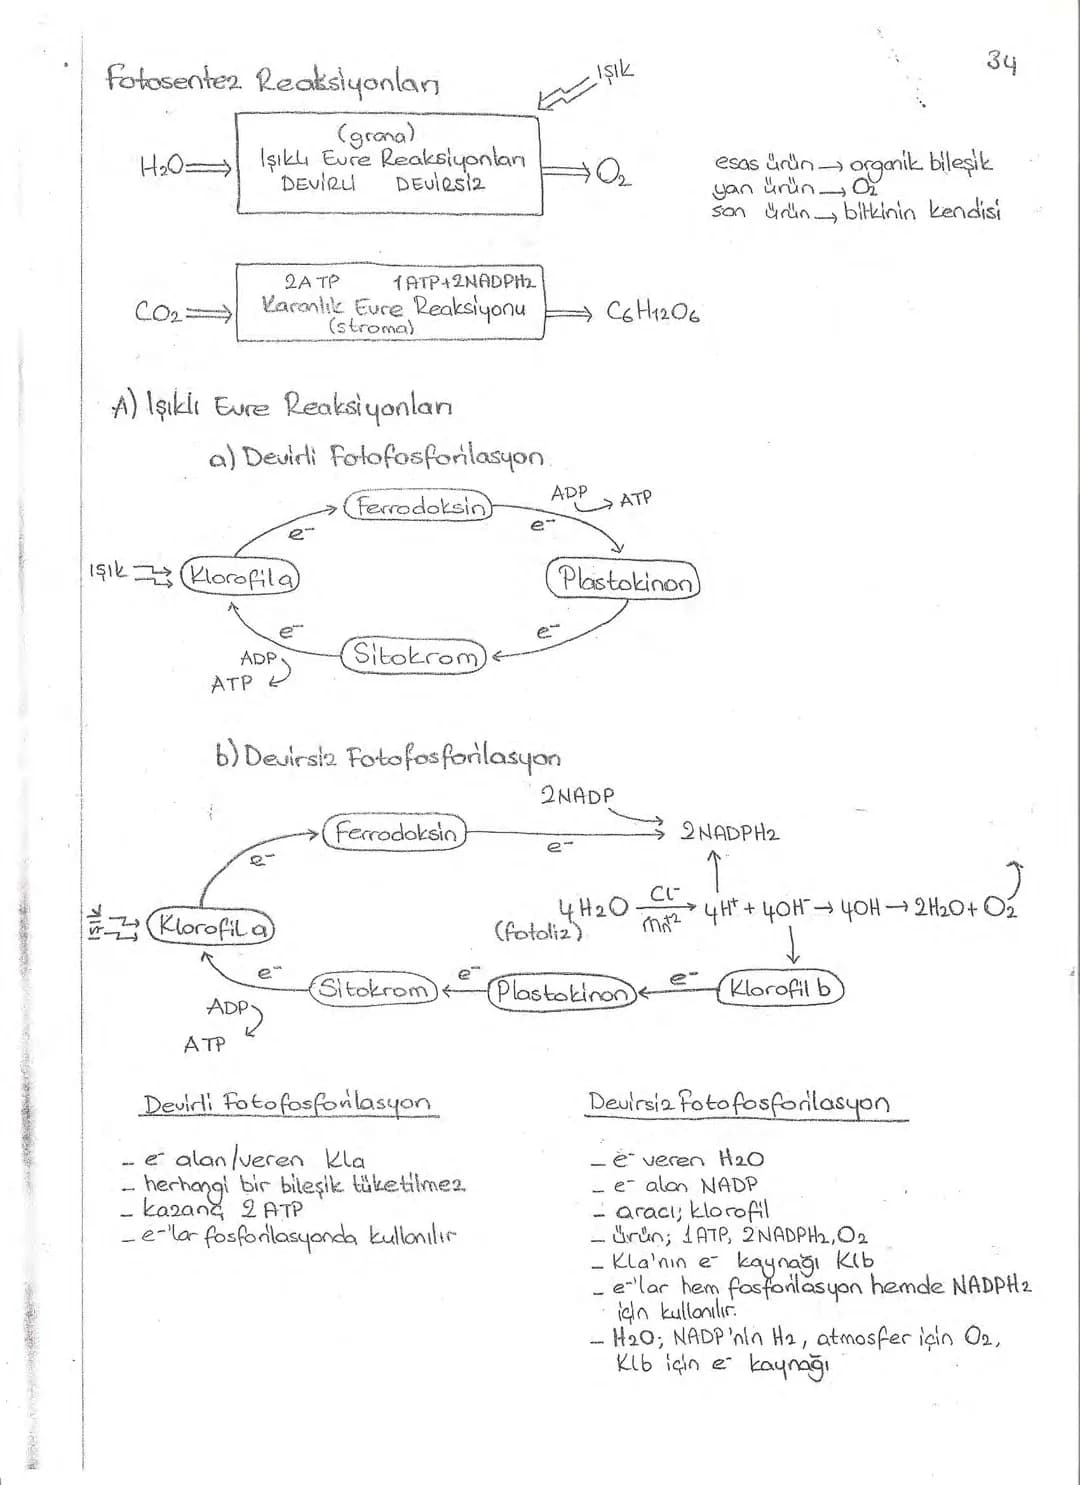 34
Fotosentez Reaksiyonları
Işık
(grana)
H2O ⇒ Işıklı Evre Reaksiyonları ⇒ O2
DEVİRLİ DEVİRSİZ
esas ürün → organik bileşik
yan ürün → O2
son ürün → bitkinin kendisi
2ATP 1ATP+2NADPH2
CO2 ⇒ Karanlık Evre Reaksiyonu ⇒ C6H12O6
(stroma)
A) Işıklı Evre Reaksiyonları
a) Devirli Fotofosforilasyon
Ferrodoksin
ADP → ATP
e-
e-
Işık
Klorofil a
Plastokinon
e-
e-
Sitokrom
ADP
ATP
b) Devirsiz Fotofosforilasyon
2NADP
Ferrodoksin
2NADPH2
e-
e-
4H2O Cl- Mn+2 → 4H+ + 4OH- → 4OH → 2H2O + O2
(fotoliz)
Işık
Klorofil a
e-
Sitokrom
e-
Plastokinon
e-
Klorofil b
ADP
ATP
Devirli Fotofosforilasyon
- e- alan/veren Kla
- herhangi bir bileşik tüketilmez
- kazanç 2 ATP
- e-'lar fosforilasyonda kullanılır
Devirsiz Fotofosforilasyon
- e- veren H2O
- e- alan NADP
- aracı; klorofil
- ürün; 1ATP, 2NADPH2, O2
- Kla'nın e- kaynağı Klb
- e-'lar hem fosforilasyon hemde NADPH2
için kullanılır.
- H2O; NADP'nin H2, atmosfer için O2,
Klb için e- kaynağı